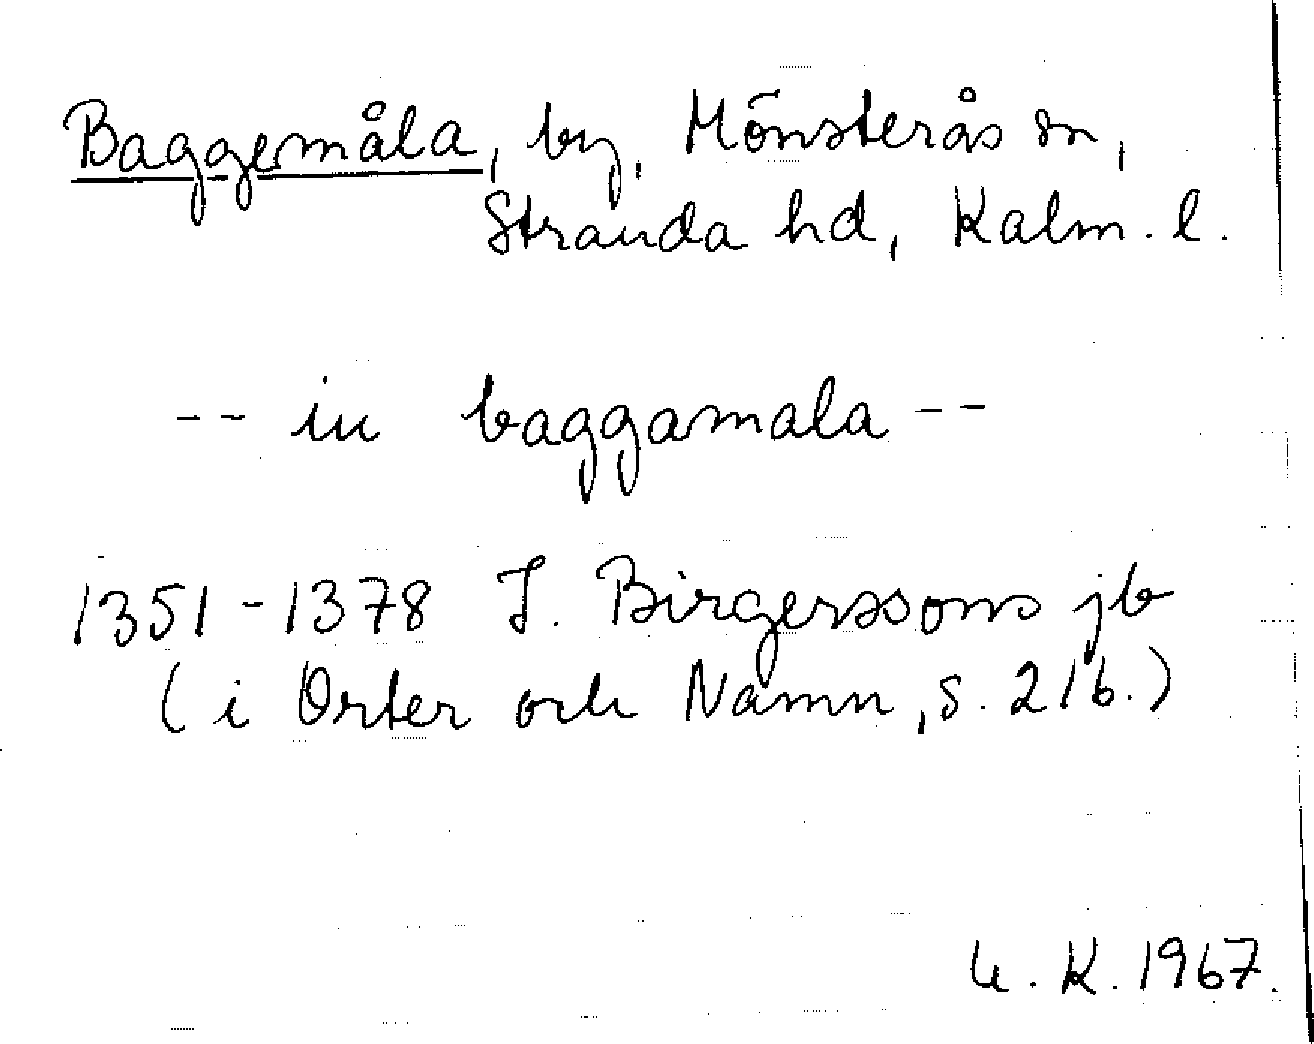 Baggemåla, by, Mönsterås sn,
Stranda hd, Kalm. l.
-- in baggamala --
1351-1378 J. Birgerssons jb
(i Orter och Namn, s. 216.)
U. K. 1967.